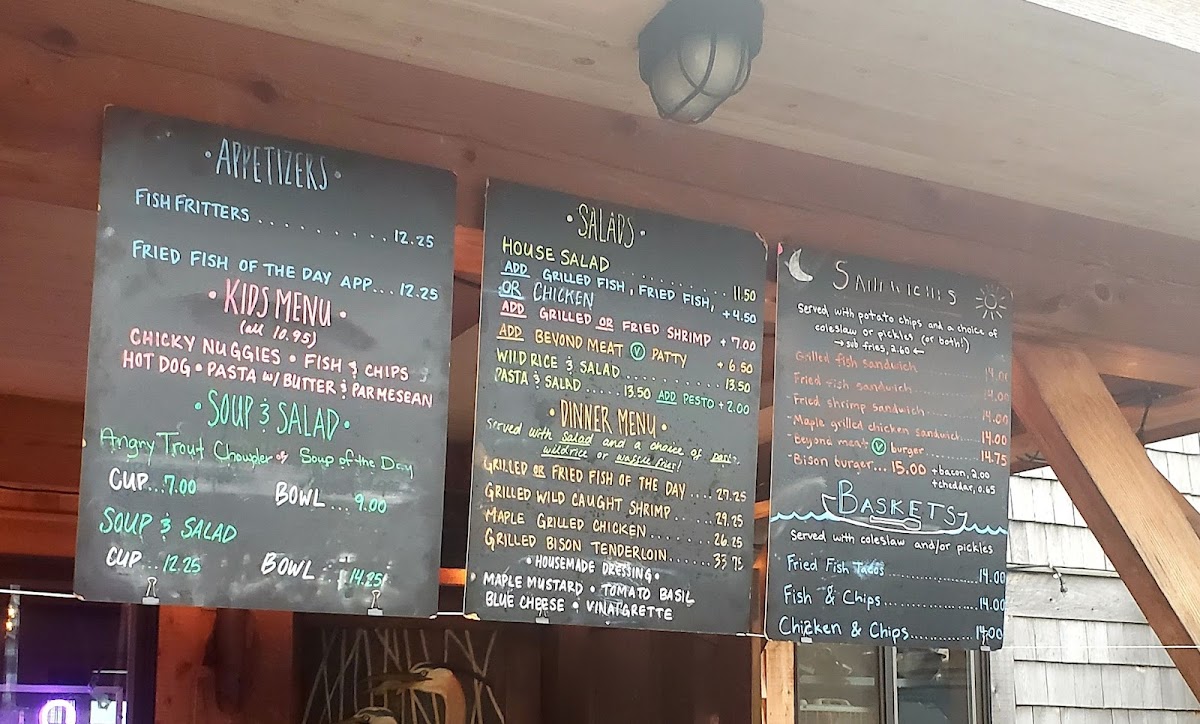 • APPETIZERS •
FISH FRITTERS . . . . . . . . . 12.25
FRIED FISH OF THE DAY APP... 12.25
• KIDS MENU •
(all 10.95)
CHICKY NUGGIES • FISH & CHIPS
HOT DOG • PASTA W/ BUTTER & PARMESEAN
• SOUP & SALAD •
Angry Trout Chowder or Soup of the Day
CUP...7.00 BOWL ... 9.00
SOUP & SALAD
CUP...12.25 BOWL . 14.25
• SALADS •
HOUSE SALAD . . . . . . . . . . 11.50
ADD GRILLED FISH, FRIED FISH,
OR CHICKEN + 4.50
ADD GRILLED OR FRIED SHRIMP + 7.00
ADD BEYOND MEAT V PATTY + 6.50
WILD RICE & SALAD . . . . . . . . . 13.50
PASTA & SALAD ..... 13.50 ADD PESTO + 2.00
• DINNER MENU •
Served with salad and a choice of
wildrice or waffle fries!
GRILLED OR FRIED FISH OF THE DAY .... 27.25
GRILLED WILD CAUGHT SHRIMP ...... 29.25
MAPLE GRILLED CHICKEN ........ 26.25
GRILLED BISON TENDERLOIN........ 33.75
• HOUSEMADE DRESSING •
MAPLE MUSTARD • TOMATO BASIL
BLUE CHEESE • VINAIGRETTE
Served with potato chips and a choice of
coleslaw or pickles (or both!)
→ sub fries, 2.60 ←
Grilled fish sandwich ........... 14.00
-Fried fish sandwich ........... 14.00
-Fried shrimp sandwich ......... 14.00
-Maple grilled chicken sandwich.... 14.00
-Beyond meat V burger ......... 14.75
-Bison burger... 15.00 +bacon, 2.00
+cheddar, 0.65
BASKETS
Served with coleslaw and/or pickles
Fried Fish Tacos ................ 14.00
Fish & Chips ................ 14.00
Chicken & Chips............ 14.00